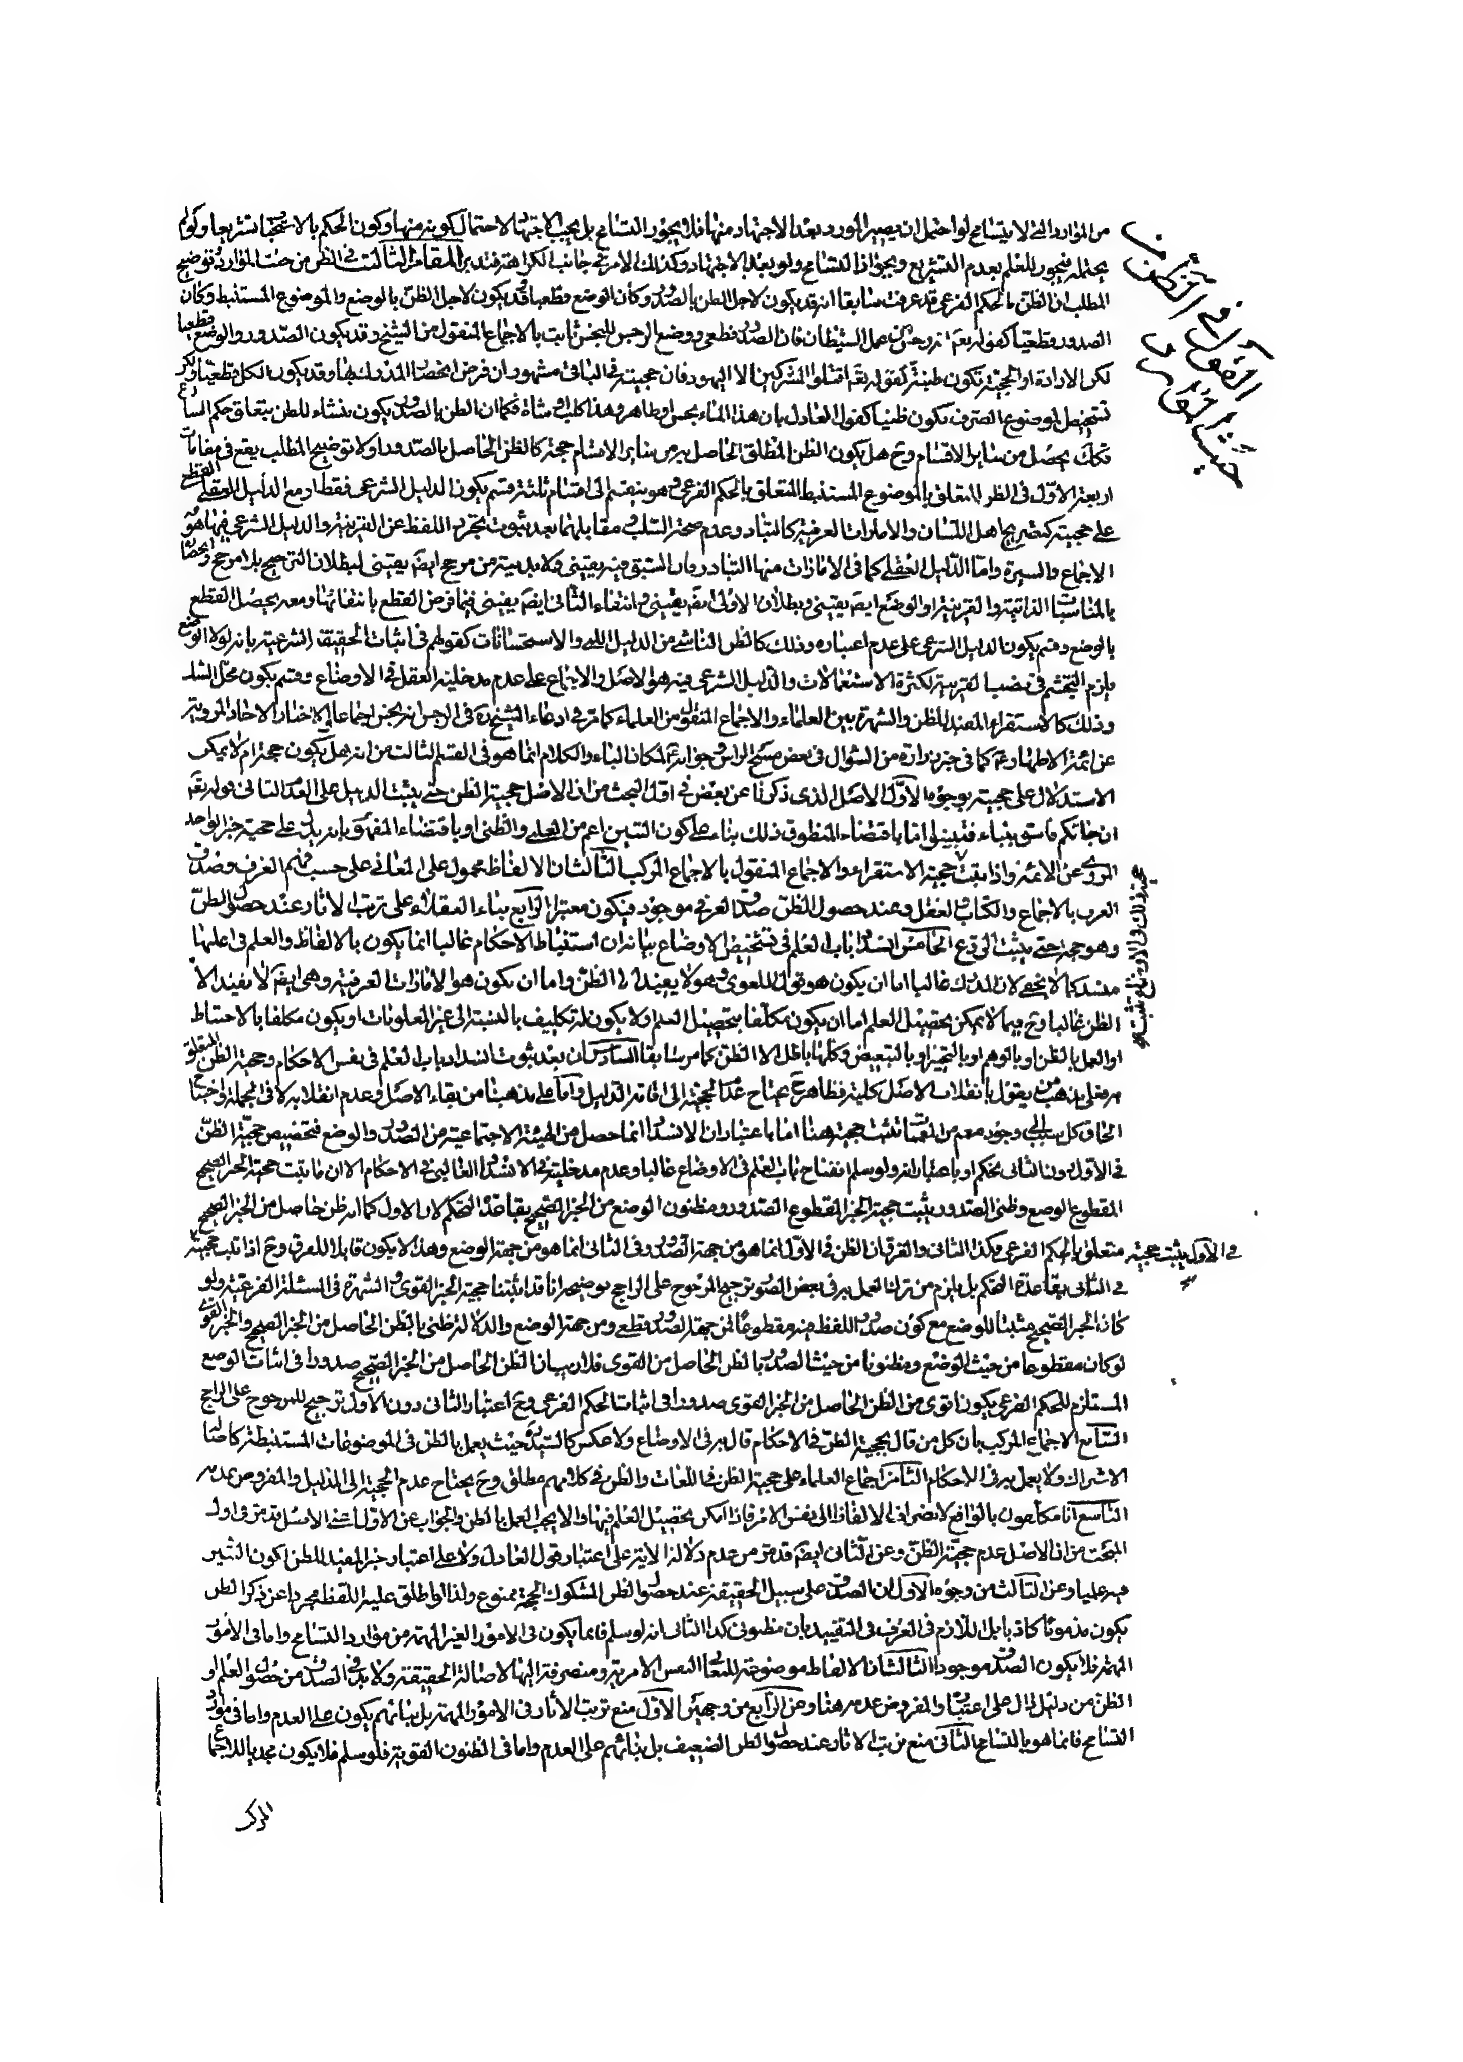 القول في الظن من
حيث الموارد
من الموارد التى لا يتسامح لو احتمل ان يصير المورد بعد الاجتهاد منها فلا يجوز التسامح بل يجب الاجتهاد لاحتمال كونه منها وكون الحكم بالاستحباب تشريعا وكونه
يحتمله فيجوز للعلم بعدم التشريع ويجوز اذا التسامح ولو بعد الاجتهاد وكذلك الامر في جانب الكراهة فتدبر المقام الثالث فى الظن من حيث الموارد توضيح
المطلب ان الظن بالحكم الفرعى قد عرفت سابقا انه قد يكون لاجل الظن بالصدور وكان الوضع قطعيا وقد يكون لاجل الظن بالوضع والموضوع المستنبط وكان
الصدور قطعيا كقوله تعالى انه رجس من عمل الشيطان فان الصدور قطعى ووضع الرجس للنجس ثابت بالاجماع المنقول من الشيخ وقد يكون الصدور والوضع قطعيا
لكن الارادة او الحجية تكون ظنية كقوله تعالى اقتلوا المشركين الا اليهود فان حجيته فى الباقى مشهور ان فرض انحصار المدرك بها وقد يكون الكل قطعيا ولكن
تشخيص الموضوع الصرف يكون ظنيا كقول العادل بان هذا الماء نجس او طاهر وهذا كلب او شاة فكما ان الظن بالصدور يكون منشاء للظن بتعلق حكم الشارع
فكذلك يحصل من ساير الاقسام وح هل يكون الظن المطلق الحاصل به من ساير الاقسام حجة كالظن الحاصل بالصدور او لا توضيح المطلب يقع فى مقامات
اربعة الاول فى الظن المتعلق بالموضوع المستنبط المتعلق بالحكم الفرعى وهو ينقسم الى اقسام ثلثة قسم يكون الدليل الشرعى فقط او مع الدليل العقلى القطعى
على حجيته كتصريح اهل اللسان والامارات العرفية كالتبادر وعدم صحة السلب ومقابلهما بعد ثبوت تجرد اللفظ عن القرينة والدليل الشرعى فيها هو
الاجماع والسيرة واما الدليل العقلى كما فى الامارات منها التبادر وان السبق فيه يقينى ولا بدية من مرجح ايضا يقينى لبطلان الترجيح بلا مرجح وانحصاره
بالمناسبة الذاتية والقرينة او الوضع ايضا يقينى وبطلان الاولى ايضا يقينى وانتفاء الثانى ايضا يقينى فيما فرض القطع بانتفائها ومعه يحصل القطع
بالوضع وقسم يكون الدليل الشرعى على عدم اعتباره وذلك كالظن الناشى من الدليل اللمى والاستحسانات كقولهم فى اثبات الحقيقة الشرعية بانه لولا الوضع
يلزم التجشم فى نصب القرينة لكثرة الاستعمالات والدليل الشرعى فيه هو الاصل والاجماع على عدم مدخلية العقل فى الاوضاع وقسم يكون محل الشك
وذلك كالاستقراء المفيد للظن والشهرة بين العلماء والاجماع المنقول من العلماء كما مر فى ادعاء الشيخ ره فى الرجس انه نجس اجماعا والاخبار الاحاد المروية
عن ائمة الاطهار ع كما فى خبر زرارة من السؤال فى بعض مسح الراس وجوابه ع لمكان الباء والكلام انما هو فى القسم الثالث من انه هل يكون حجة ام لا يمكن
الاستدلال على حجيته بوجوه الاول الاصل الذى ذكرنا عن بعض فى اول البحث من ان الاصل حجية الظن حتى يثبت الدليل على العدم الثانى قوله تعالى
ان جائكم فاسق بنباء فتبينوا اما باقتضاء المنطوق ذلك بناء على كون التبين اعم من العلمى والظنى او باقتضاء المفهوم بانه يدل على حجية خبر الواحد
المروى عن الائمة واذا ثبت حجيته ثبت حجية الاستقراء والاجماع المنقول بالاجماع المركب الثالث ان الالفاظ محمول على المعانى على حسب فهم العرف وصدق
العرب بالاجماع والكتاب والعقل وعند حصول الظن صدق العرفى موجود فيكون معتبرا الرابع بناء العقلاء على ترتب الاثار عند حصول الظن
وهو حجة حتى يثبت الردع الخامس انسداد باب العلم فى تشخيص الاوضاع بيانه ان استنباط الاحكام غالبا انما يكون بالالفاظ والعلم فى اغلبها
منسد كما لا يخفى لان المدرك غالبا اما ان يكون هو قول اللغوى وهو لا يفيد الا الظن واما ان يكون هو الامارات العرفية وهى ايضا لا تفيد الا
الظن غالبا وح فيما لا يمكن تحصيل العلم اما ان يكون مكلفا بتحصيل العلم او لا يكون له تكليف بالنسبة الى غير المعلومات او يكون مكلفا بالاحتياط
او العمل بالظن او بالوهم او بالتخيير او بالتبعيض وكلها باطل الا الظن كما مر سابقا السادس ان بعد ثبوت انسداد باب العلم فى نفس الاحكام وحجية الظن المتعلق
به فعلى مذهب من يقول بانقلاب الاصل كلية فظاهر ح يحتاج عدم الحجية الى اقامة الدليل واما على مذهبنا من بقاء الاصل وعدم انقلابه الا فى الجملة واحتياج
الحاق كل سبب الى وجود معمم من المعممات تثبت حجيته هنا اما باعتبار ان الانسداد انما حصل من الهيئة الاجتماعية من الصدور والوضع فتخصيص حجية الظن
فى الاول دون الثانى تحكم او باعتبار انه ولو سلم انفتاح باب العلم فى الاوضاع غالبا وعدم مدخليته فى الانسداد الغالبى فى الاحكام الا ان ما ثبت حجية الخبر الصحيح
المقطوع الوضع وظنى الصدور يثبت حجية الخبر المقطوع الصدور ومظنون الوضع من الخبر الصحيح بقاعدة التحكم لان الاول كما انه ظن حاصل من الخبر الصحيح
فى الاول يثبت حجيته متعلق بالحكم الفرعى فكذا الثانى والفرق ان الظن فى الاول انما هو من جهة الصدور وفى الثانى انما هو من جهة الوضع وهذا لا يكون قابلا للفرق وح اذا ثبت حجيته
فى الثانى بقاعدة التحكم بل يلزم من ترك العمل به فى بعض الصور ترجيح المرجوح على الراجح توضيحه انا قد اثبتنا حجية الخبر القوى والشهرة فى المسئلة الفرعية ولو
كان الخبر الصحيح مثبتا للوضع مع كون صدور اللفظ فيه مقطوعا فمن جهة الصدور قطعى ومن جهة الوضع والدلالة ظنى بالظن الحاصل من الخبر الصحيح والخبر القوى
لو كان مقطوعا من حيث الوضع ومظنونا من حيث الصدور بالظن الحاصل من القوى فلا ريب ان الظن الحاصل من الخبر الصحيح صدورا فى اثبات الوضع
المستلزم للحكم الفرعى يكون اقوى من الظن الحاصل من الخبر القوى صدورا فى اثبات الحكم الفرعى وح اعتبار الثانى دون الاول ترجيح للمرجوح على الراجح
السابع الاجماع المركب بان كل من قال بحجية الظن فى الاحكام قال به فى الاوضاع ولا عكس كالسيد ره حيث يعمل بالظن فى الموضوعات المستنبطة كاصالة
الاشتراك ولا يعمل به فى الاحكام الثامن اجماع العلماء على حجية الظن فى اللغات والظن فى كلامهم مطلق وح يحتاج عدم الحجية الى الدليل والمفروض عدمه
التاسع انا مكلفون بالواقع لانصراف الالفاظ الى نفس الامر فاذا امكن تحصيل العلم فيها والا يجب العمل بالظن والجواب عن الاول ما قد مر فى اول
المبحث من ان الاصل عدم حجية الظن وعن الثانى ايضا قد مر من عدم دلالة الاية على اعتبار قول العادل ولا على اعتبار خبر المفيد للظن لكون التبين
فيه علميا وعن الثالث من وجوه الاول ان الصدق على سبيل الحقيقة عند حصول الظن المشكوك الحجية ممنوع ولذا لو اطلق عليه اللفظ مجردا عن ذكر الظن
يكون مذموما كاذبا بل اللازم فى العرف فى التقييد بان مظنونى كذا الثانى انه لو سلم فانما يكون فى الامور الغير المهمة من موارد التسامح واما فى الامور
المهمة فلا يكون الصدق موجودا الثالث ان الالفاظ موضوعة للمعانى النفس الامرية ومنصرفة اليها لاصالة الحقيقة ولا بد فى الصدق من حصول العلم او
الظن من دليل دال على اعتباره والمفروض عدمه هنا وعن الرابع من وجهين الاول منع ترتب الاثار فى الامور المهمة بل بنائهم يكون على العدم واما فى موارد
التسامح فانما هو بالتسامح الثانى منع ترتب الاثار عند حصول الظن الضعيف بل بنائهم على العدم واما فى الظنون القوية فلو سلم فلا يكون مجديا للاجماع
المركب